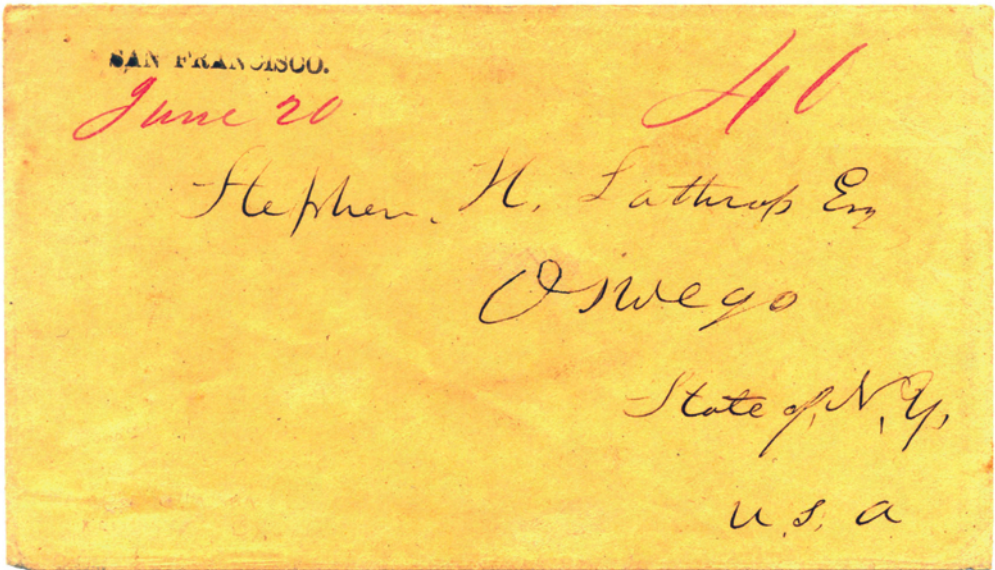 SAN FRANCISCO.
June 20
40
Stephen. H. Lathrop Esq
Oswego
State of, N, Y,
U. S. A